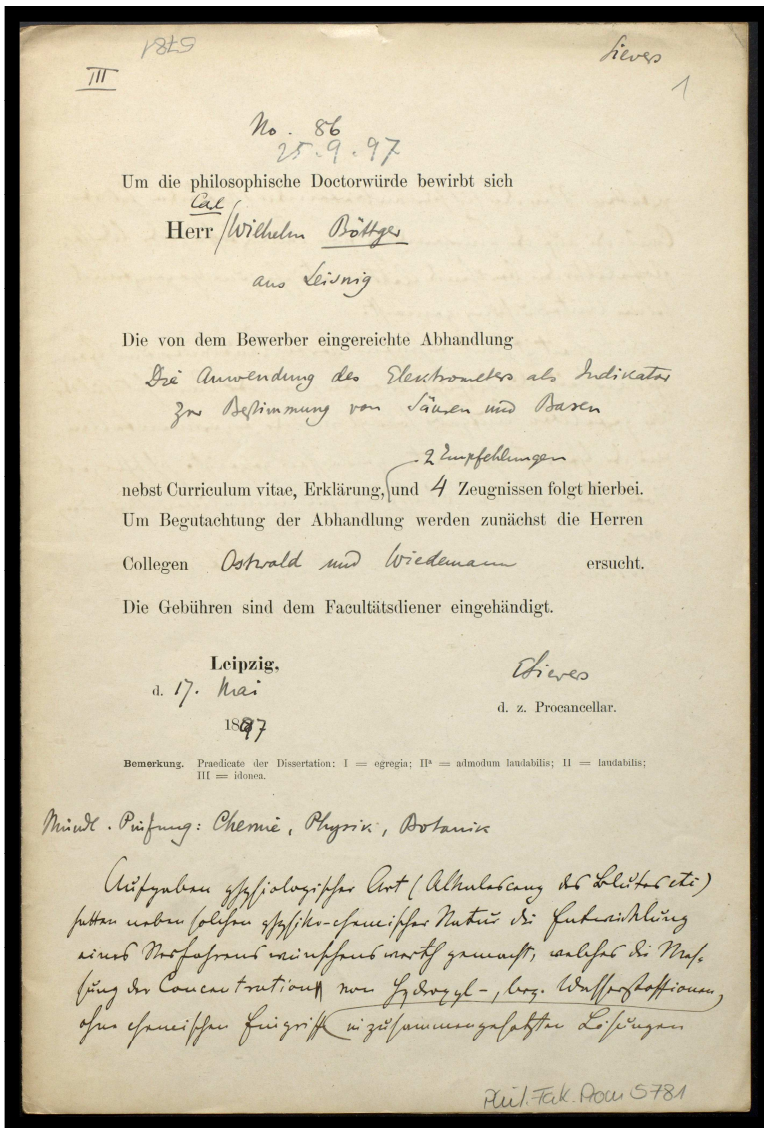 5781
Sievers
III
1
No. 86
25.9.97
Um die philosophische Doctorwürde bewirbt sich
Carl
Herr Wilhelm Böttger
aus Leisnig
Die von dem Bewerber eingereichte Abhandlung
Die Anwendung des Elektrometers als Indikator
zur Bestimmung von Säuren und Basen
2 Empfehlungen
nebst Curriculum vitae, Erklärung, und 4 Zeugnissen folgt hierbei.
Um Begutachtung der Abhandlung werden zunächst die Herren
Collegen Ostwald und Wiedemann ersucht.
Die Gebühren sind dem Facultätsdiener eingehändigt.
Leipzig,
d. 17. Mai
1897
ESievers
d. z. Procancellar.
Bemerkung. Praedicate der Dissertation: I = egregia; IIª = admodum laudabilis; II = laudabilis;
III = idonea.
Mündl. Prüfung: Chemie, Physik, Botanik
Aufgaben physiologischer Art (Alkalescenz des Blutes etc)
hatten neben solchen physiko-chemischer Natur die Entwicklung
eines Verfahrens wünschenswerth gemacht, welches die Mes-
sung der Concentration von Hydroxyl-, bez. Wasserstoffionen,
ohne chemischen Eingriff in zusammengesetzten Lösungen
Phil.Fak.Prom 5781